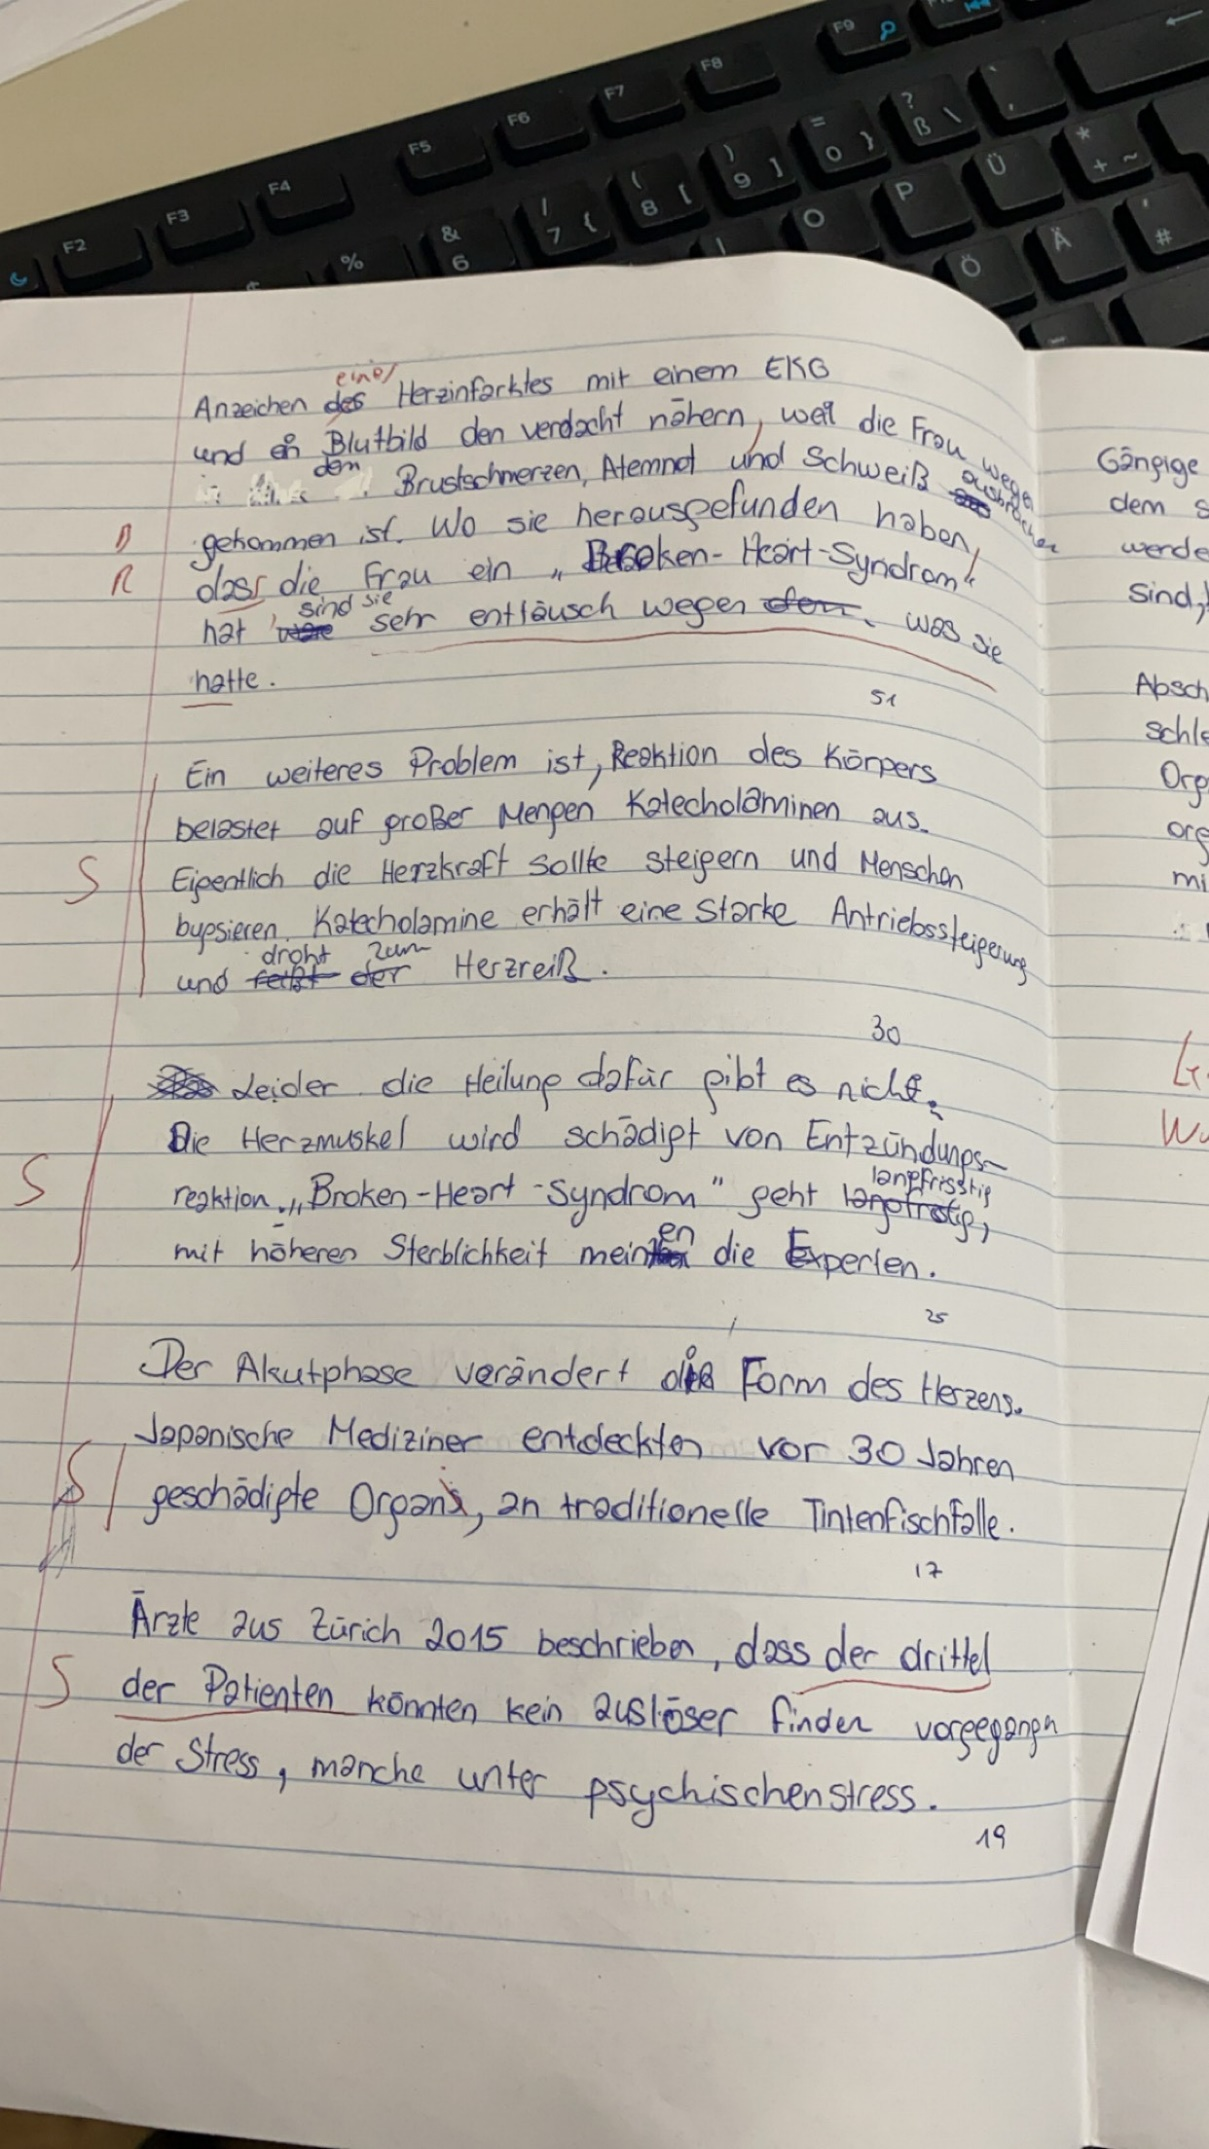 F2 F3 F4 F5 F6 F7 F8 F9
% & 6 / 7 { ( 8 [ ) 9 ] = 0 } ? ß \ `
O P Ü * + ~
Ö Ä ' #
eines
Anzeichen des Herzinfarktes mit einem EKG
und ein Blutbild den verdacht nähern, weil die Frau wegen
den Brustschmerzen, Atemnot und Schweiß ausbrüchen
gekommen ist. Wo sie herausgefunden haben,
R dass die Frau ein „Broken-Heart-Syndrom"
sind sie
hat sehr entläusch wegen dem was sie
hatte.
51
Ein weiteres Problem ist, Reaktion des Körpers
belastet auf großer Mengen Katecholaminen aus.
S Eigentlich die Herzkraft sollte steigern und Menschen
bypsieren. Katecholamine erhält eine starke Antriebssteigerung
droht zum
und fehlt der Herzreiß.
30
Leider die Heilung dafür gibt es nicht.
Die Herzmuskel wird schädigt von Entzündungs-
langfrisstig
S reaktion. „Broken-Heart-Syndrom" geht langfrstig,
en
mit höheren Sterblichkeit mein die Experten.
25
Der Akutphase verändert die Form des Herzens.
Japanische Mediziner entdeckten vor 30 Jahren
S geschädigte Organs, an traditionelle Tintenfischfalle.
17
Ärzte aus Zürich 2015 beschrieben, dass der drittel
S der Patienten könnten kein auslöser finden vorgegangen
der Stress, manche unter psychischenstress.
19
Gängige
dem s
werde
sind,
Absch
schle
Org
org
mi